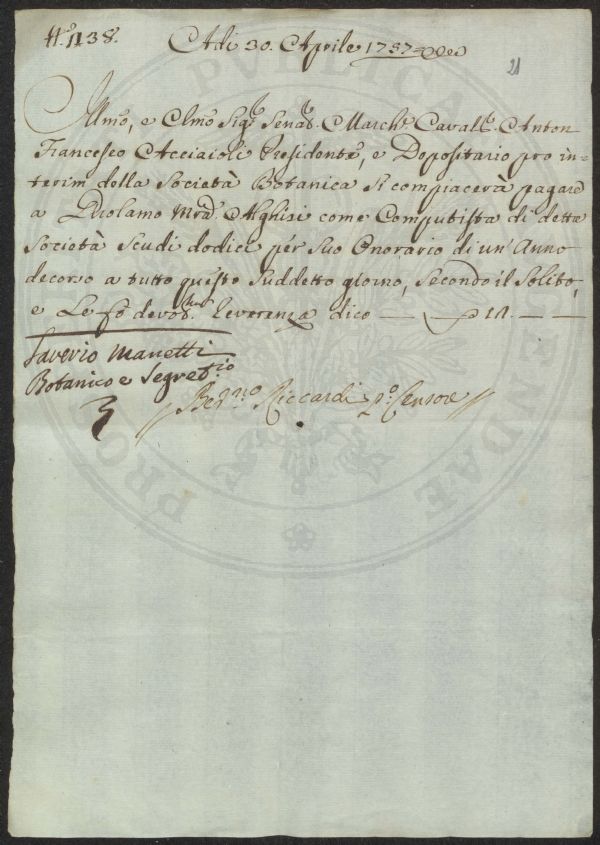 N.° 1138.
Adi 30. Aprile 1757
21
Illmo, e Clmo Sig.r Senat.r March.e Cavall.e Anton
Francesco Acciaioli Presidente, e Depositario pro in=
terim della Società Botanica si compiacerà pagare
a Girolamo M.a Alghisi come Computista di detta
Società Scudi dodici per suo Onorario di un' Anno
decorso a tutto questo suddetto giorno, secondo il Solito,
e Le fo devot.ma reverenza dico — 12. — —
Saverio Manetti
Botanico e Segret.io
Bern.no Riccardi p.o Censore
PUBLICAE